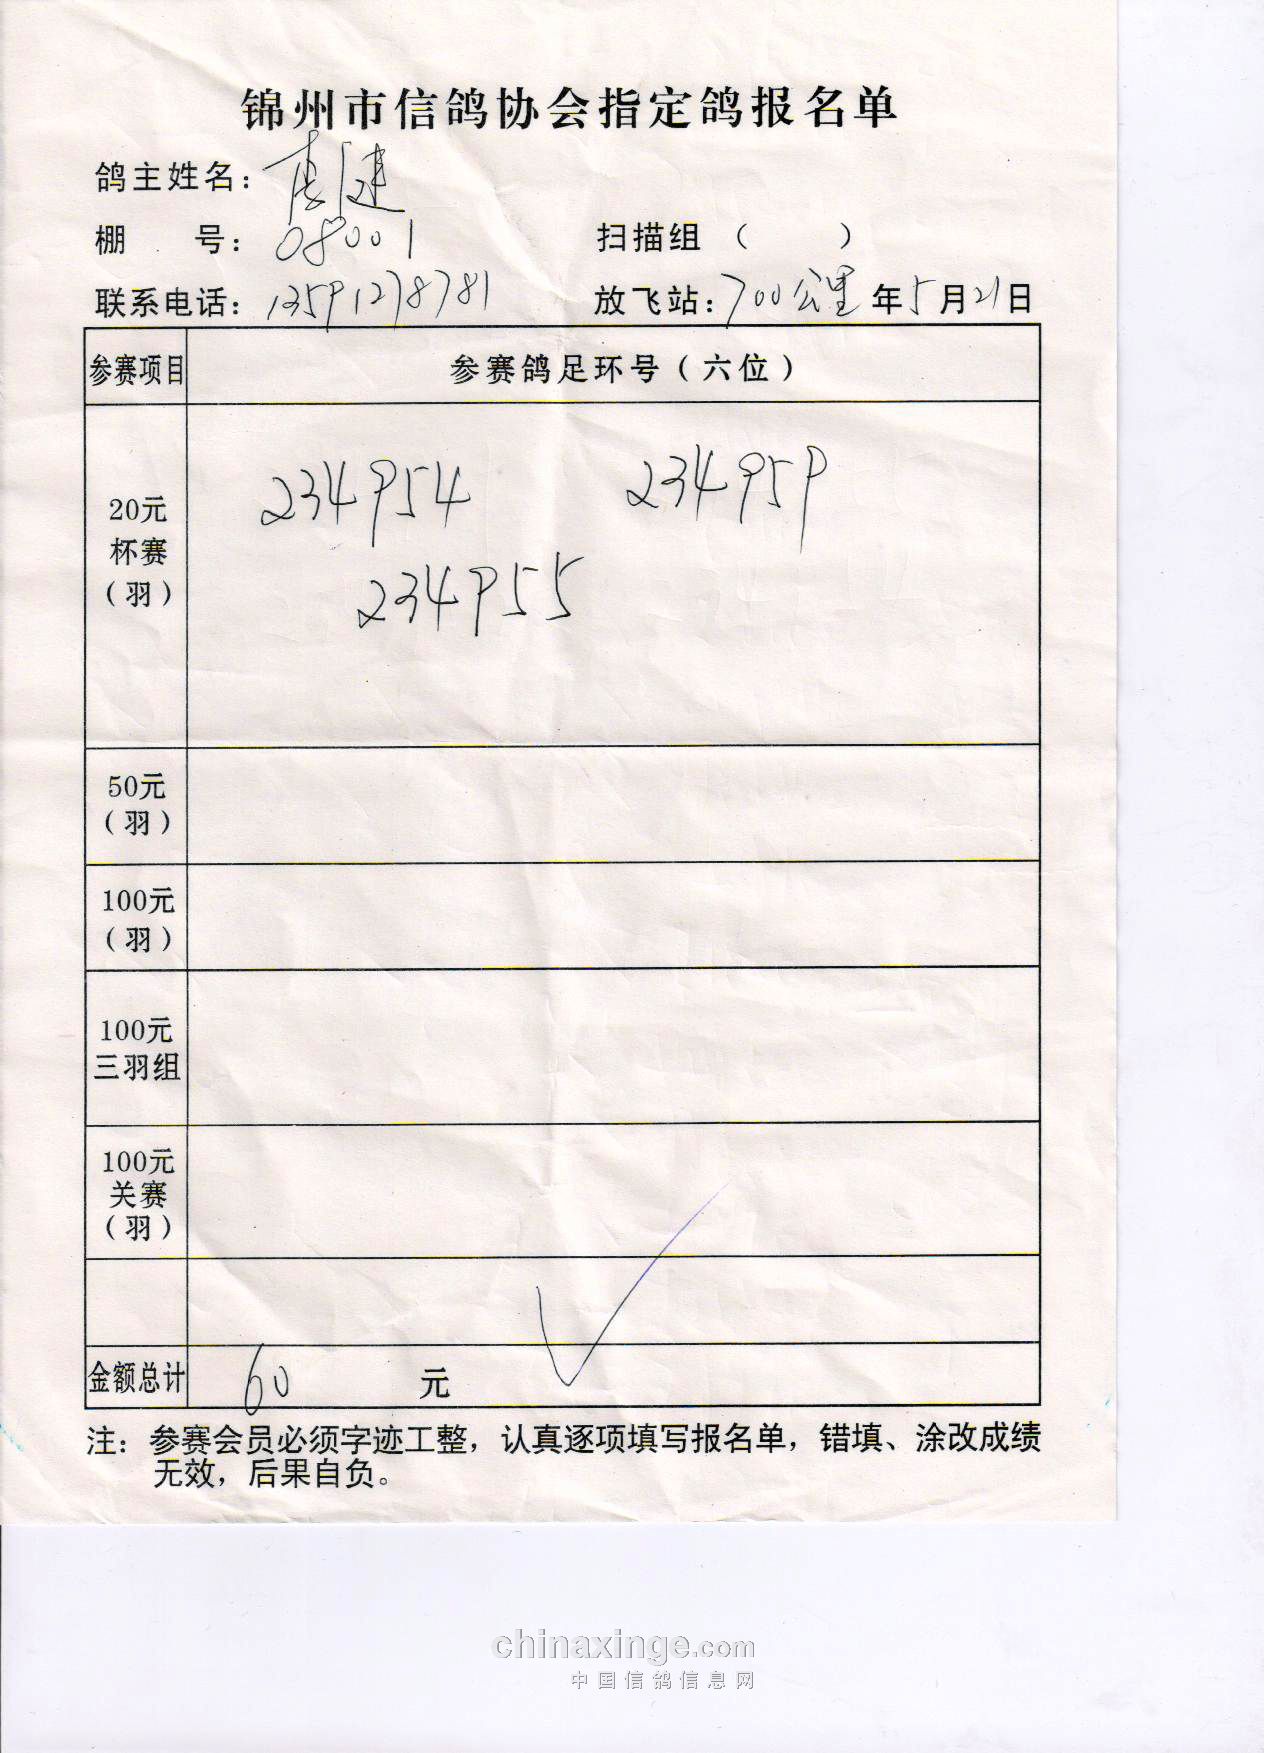 锦州市信鸽协会指定鸽报名单
鸽主姓名：
棚 号：08001 扫描组 （ ）
联系电话：13591278781 放飞站：700公里 年5月21日
参赛项目 参赛鸽足环号（六位）
20元
杯赛
（羽）
234954 234959
234955
50元
（羽）
100元
（羽）
100元
三羽组
100元
关赛
（羽）
金额总计 60 元
注：参赛会员必须字迹工整，认真逐项填写报名单，错填、涂改成绩
无效，后果自负。
chinaxinge.com
中国信鸽信息网